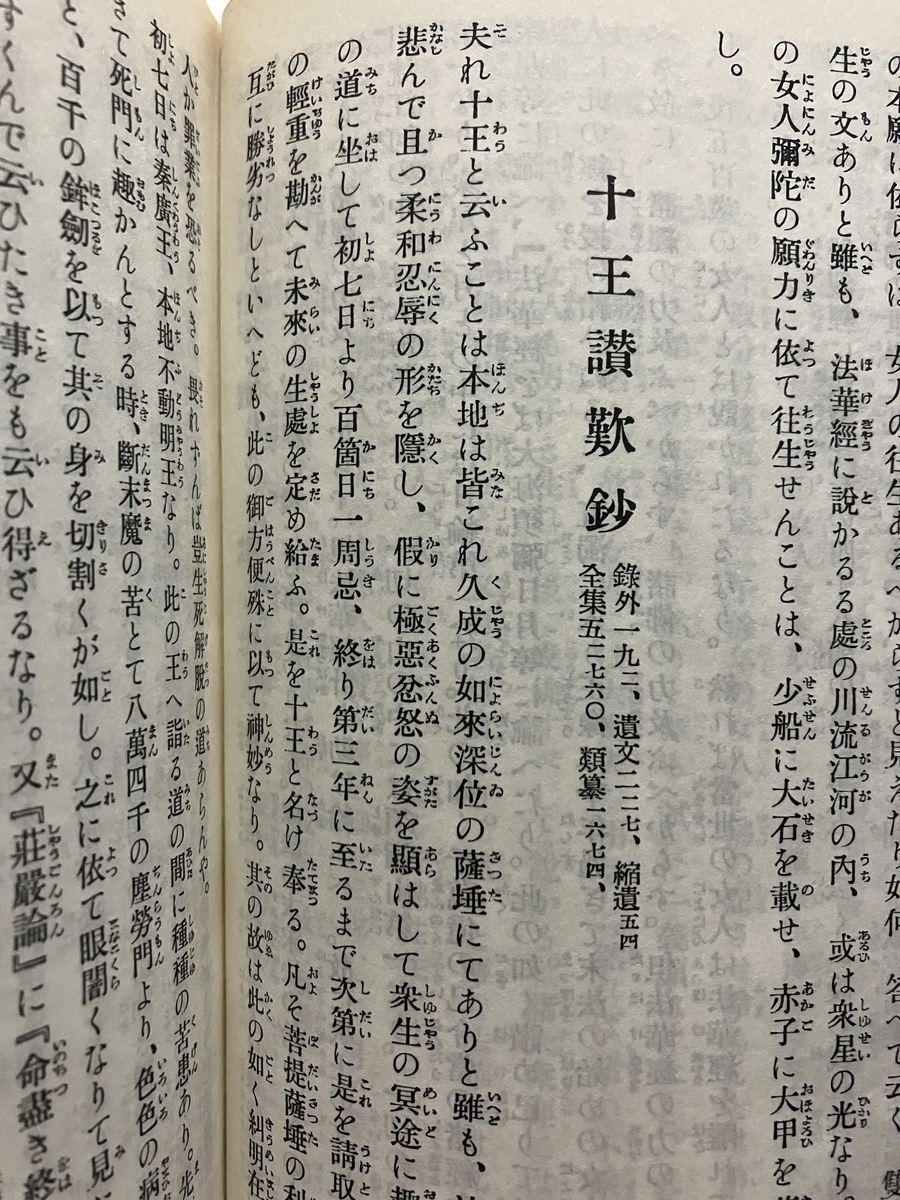 の本願に依らずは、女人の往生あるべからずと見えたり如何。答へて云く、雙
生の文ありと雖も、法華經に說かるる處の川流江河の內、或は衆星の光なり
の女人彌陀の願力に依て往生せんことは、少船に大石を載せ、赤子に大甲を
し。
十王讃歎鈔
錄外一九二、遺文二二七、縮遺五四
全集五二七六〇、類纂一六七四、
夫れ十王と云ふことは本地は皆これ久成の如來深位の薩埵にてありと雖も、
悲んで且つ柔和忍辱の形を隱し、假に極惡忿怒の姿を顯はして衆生の冥途に趣
の道に坐して初七日より百箇日一周忌、終り第三年に至るまで次第に是を請取
の輕重を勘へて未來の生處を定め給ふ。是を十王と名け奉る。凡そ菩提薩埵の利
互に勝劣なしといへども、此の御方便殊に以て神妙なり。其の故は此の如く糾明在
人か罪業を恐るべき。畏れずんば豈生死解脫の道あらんや。
初七日は秦廣王、本地不動明王なり。此の王へ詣る道の間に種種の苦患あり。先
さて死門に趣かんとする時、斷末魔の苦とて八萬四千の塵勞門より、色色の病
と、百千の鉾劒を以て其の身を切割くが如し。之に依て眼闇くなりて見
すくんで云ひたき事をも云ひ得ざるなり。又『莊嚴論』に『命盡き終